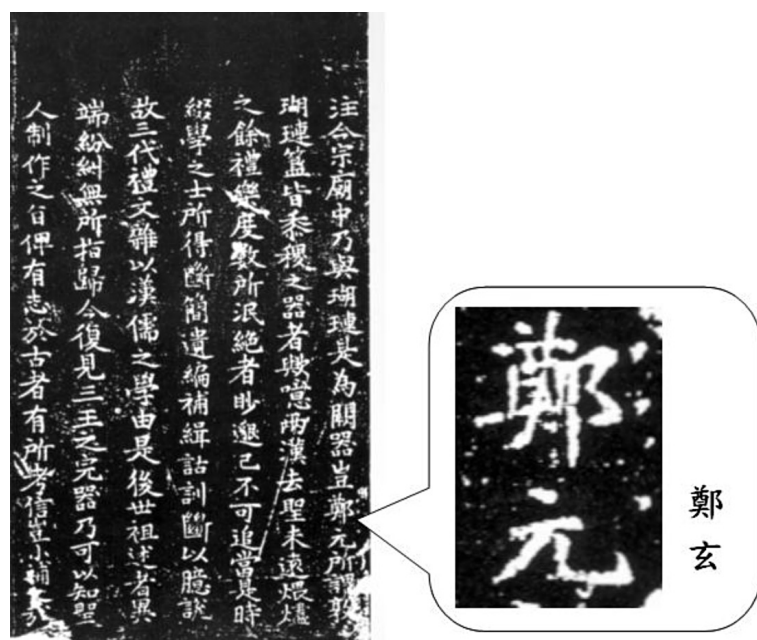 注今宗廟中乃與瑚璉是為關器豈鄭元所謂敦
瑚璉簠皆黍稷之器者與噫兩漢去聖未遠煨燼
之餘禮樂度數所泯絶者眇邈已不可追當是時
綴學之士所得斷簡遺編補緝詁訓斷以臆說
故三代禮文雜以漢儒之學由是後世祖述者異
端紛糾無所指歸今復見三王之完器乃可以知聖
人制作之旨俾有志於古者有所考信豈小補於
鄭元
鄭玄